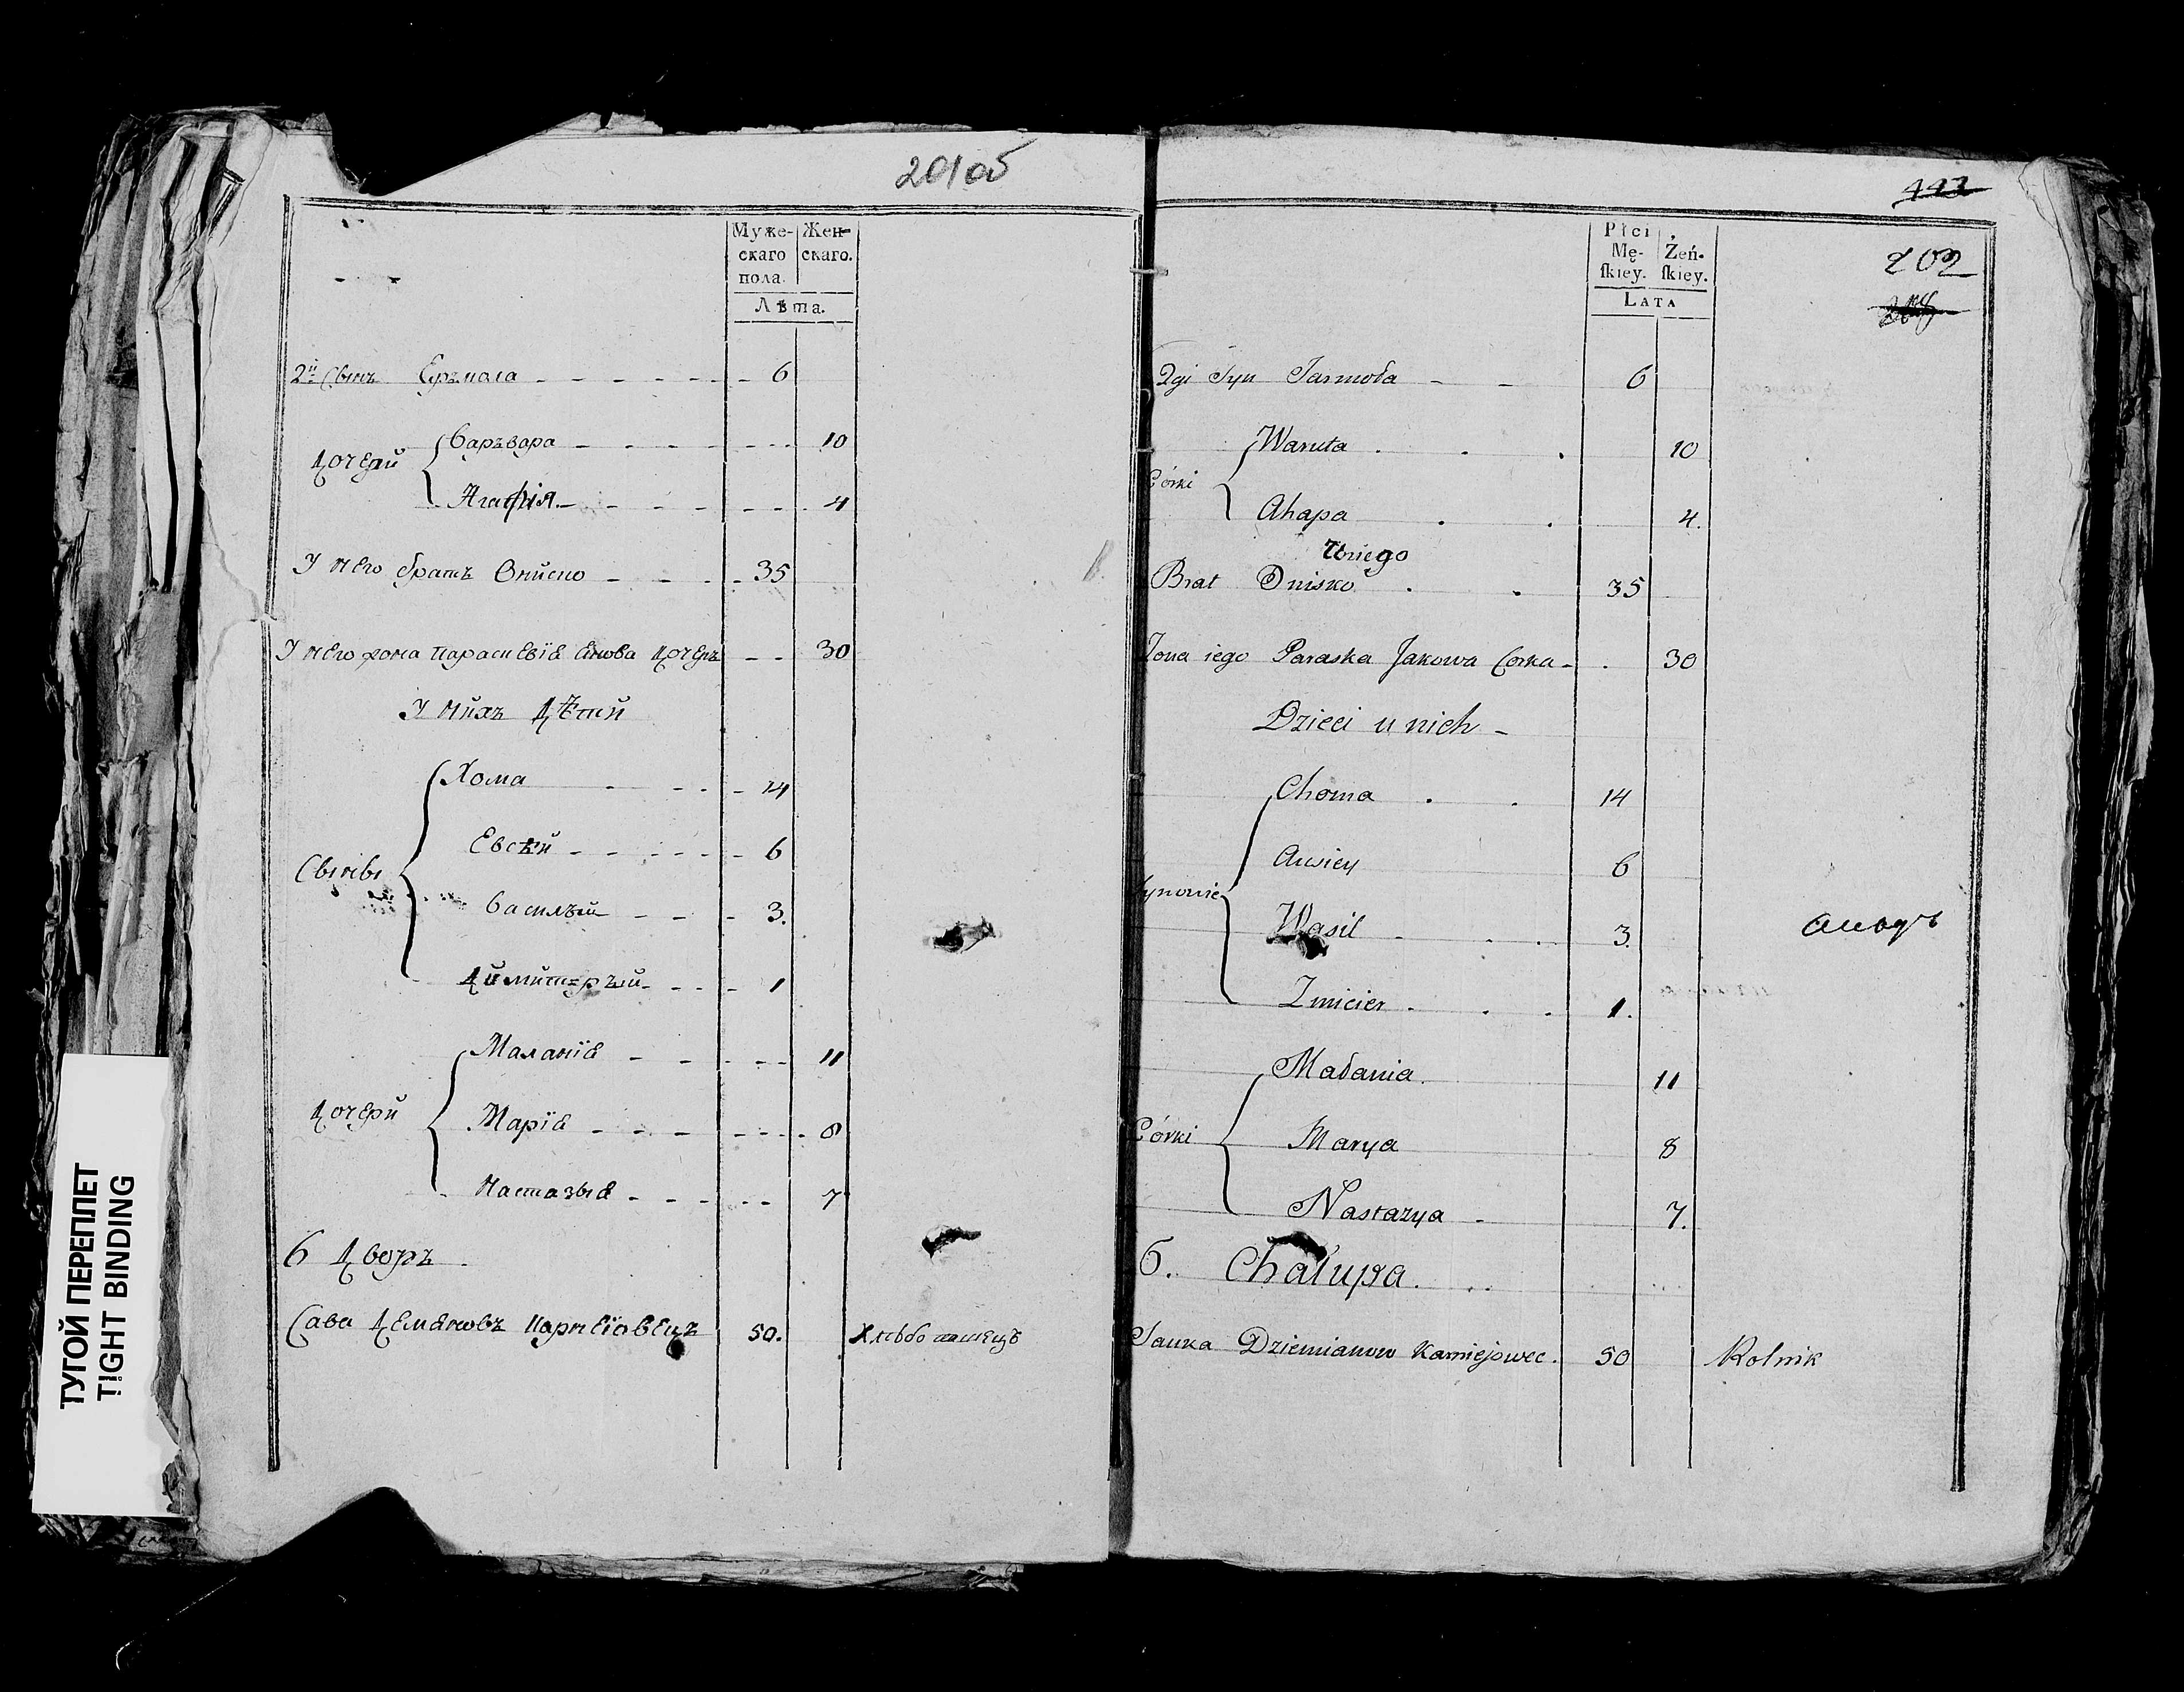 201об
Муже-
скаго
пола.
Жен-
скаго.
Лѣта.
2й Сынъ Ермола 6
Дочери
Варъвара 10
Агафия 4
У него братъ Ониско 35
У него жона Параскевія Якова Дочеръ 30
У нихъ Дѣти
Сыны
Хома 14
Евсѣй 6
Василъй 3.
Димитръй 1
Дочери
Маланія 11
Марія 8
Настазыя 7
6 Дворъ
Сава Демяновъ Карнеіовецъ 50. Хлѣбопашецъ
443
202
Płci
Mę-
skiey.
Żeń-
skiey.
LATA
2gi Syn Jarmoła 6
Córki
Waruta 10
Ahapa 4.
U niego
Brat Onisko 35
Zona iego Paraska Jakowa Corka 30
Dzieci u nich
Synowie
Choma 14
Awsiey 6
Wasil 3
Zmicier 1.
Córki
Małania 11
Marya 8
Nastazya 7.
6. Chałupa.
Sauka Dziemianow Karniejowec. 50 Rolnik
ТУГОЙ ПЕРЕПЛЕТ
TIGHT BINDING